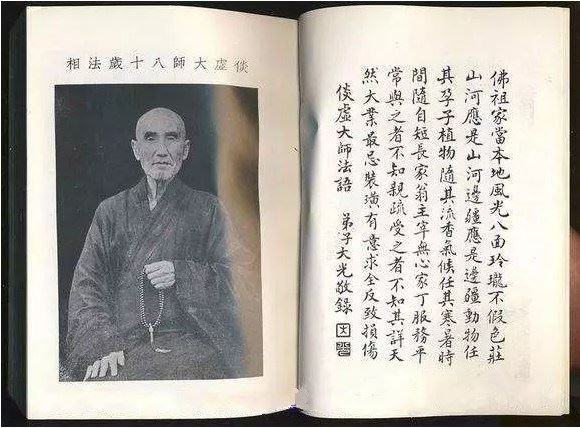 佛祖家當本地風光八面玲瓏不假色莊
山河應是山河邊疆應是邊疆動物任
其孕子植物隨其流香氣候任其寒暑時
間隨自短長家翁主宰無心家丁服務平
常與之者不知親疏受之者不知其詳天
然大業最忌裝璜有意求全反致損傷
倓虛大師法語 弟子大光敬錄
倓虛大師八十歲法相